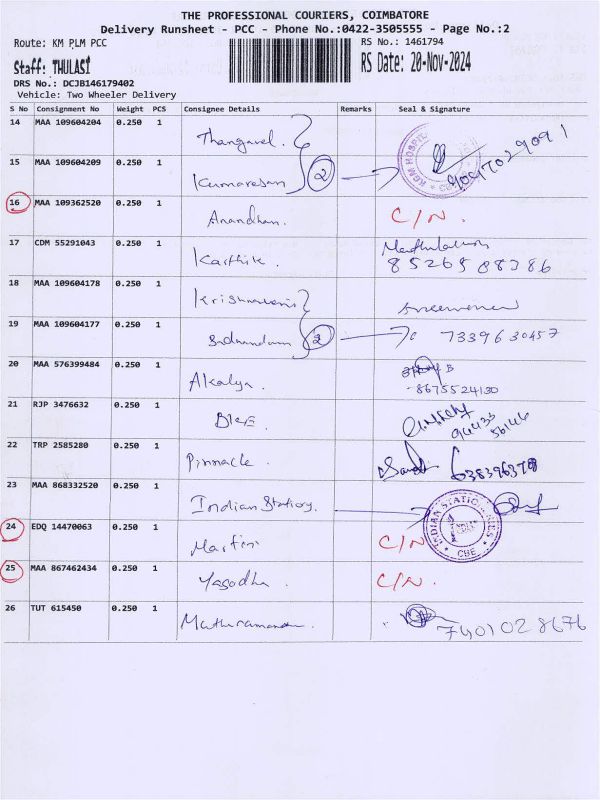 THE PROFESSIONAL COURIERS, COIMBATORE
Delivery Runsheet - PCC - Phone No.:0422-3505555 - Page No.:2
Route: KM PLM PCC
RS No.: 1461794
Staff: THULASI
RS Date: 20-Nov-2024
DRS No.: DCJB146179402
Vehicle: Two Wheeler Delivery
S No Consignment No Weight PCS Consignee Details Remarks Seal & Signature
14 MAA 109604204 0.250 1 Thangavel.
15 MAA 109604209 0.250 1 Kumaresan 2 KGM HOSPITAL
16 MAA 109362520 0.250 1 Anandhan. C/N.
17 CDM 55291043 0.250 1 Karthik. 8526588386
18 MAA 109604178 0.250 1
19 MAA 109604177 0.250 1 2 7339630457
20 MAA 576399484 0.250 1 Akalya. B
8675524130
21 RJP 3476632 0.250 1 94433
56146
22 TRP 2585280 0.250 1 Pinnacle.
23 MAA 868332520 0.250 1 Indian Stationy. INDIAN STATIONERIES CBE
24 EDQ 14470063 0.250 1 Martin C/N
25 MAA 867462434 0.250 1 Yasodha. C/N.
26 TUT 615450 0.250 1 7401028676